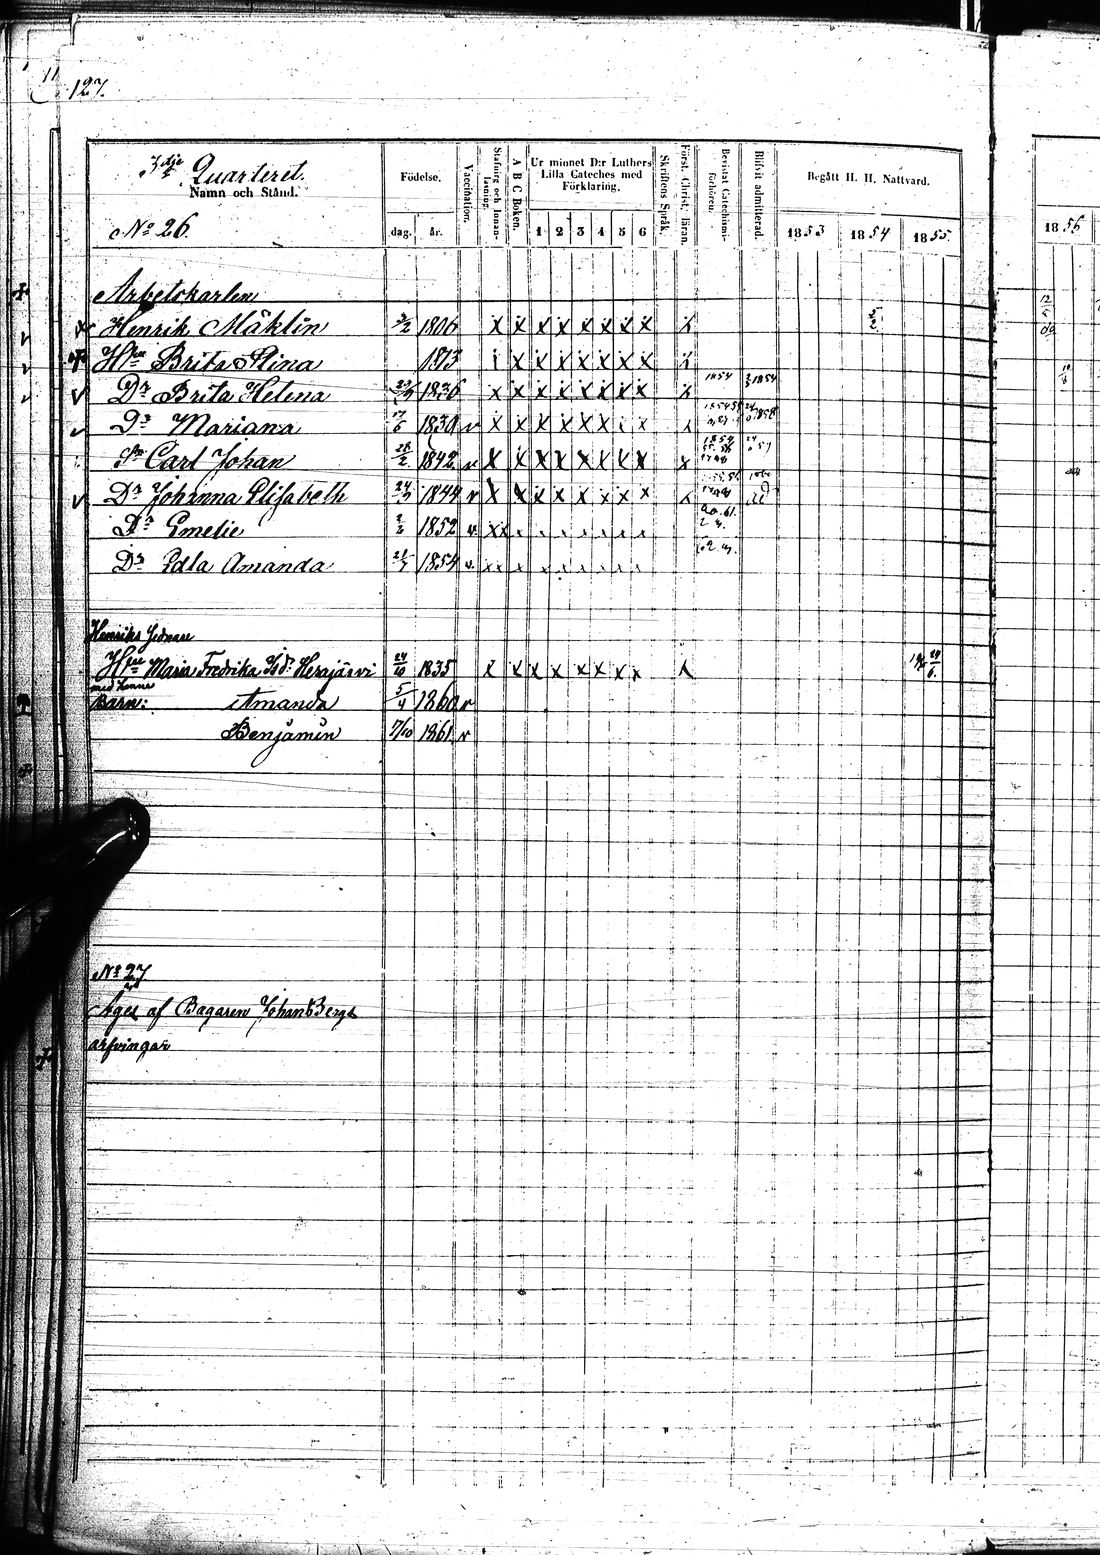 127.
3dje Quarteret.
Namn och Stånd.
No 26.
Födelse.
dag. år.
Vaccination.
Stafning och Innan-
läsning.
A B C Boken.
Ur minnet D:r Luthers
Lilla Cateches med
Förklaring.
1 2 3 4 5 6
Skriftens Språk.
Först. Christ. läran.
Bevistat Catechismi-
förhören.
Blifvit admitterad.
Begått H. H. Nattvard.
1853 1854 1855
1856
Arbetskarlen
Henrik Mäklin 1806 x x x x x x x x x
Hru Brita Stina 1813 x x x x x x x x
Dr Brita Helena 1836 x x x x x x x x x 1854 1854
Dr Mariana 17/6 1839 v x x x x x x x
Sn Carl Johan 28/2 1842 v x x x x x x x x x 1854
Dr Johanna Elisabeth 1844 v x x x x x x x x
Dr Emelie 1852 v. x x
Dr Edla Amanda 1854 v.
Henriks Sednare
Hru Maria Fredrika Isd:r Herajärvi 24/10 1835 x x x x x x x x 24/6
med henne
Barn: Amanda 5/4 1860 v
Benjamin 7/10 1861 v
No 27
Äges af Bagaren Johan Bergs
arfvingar